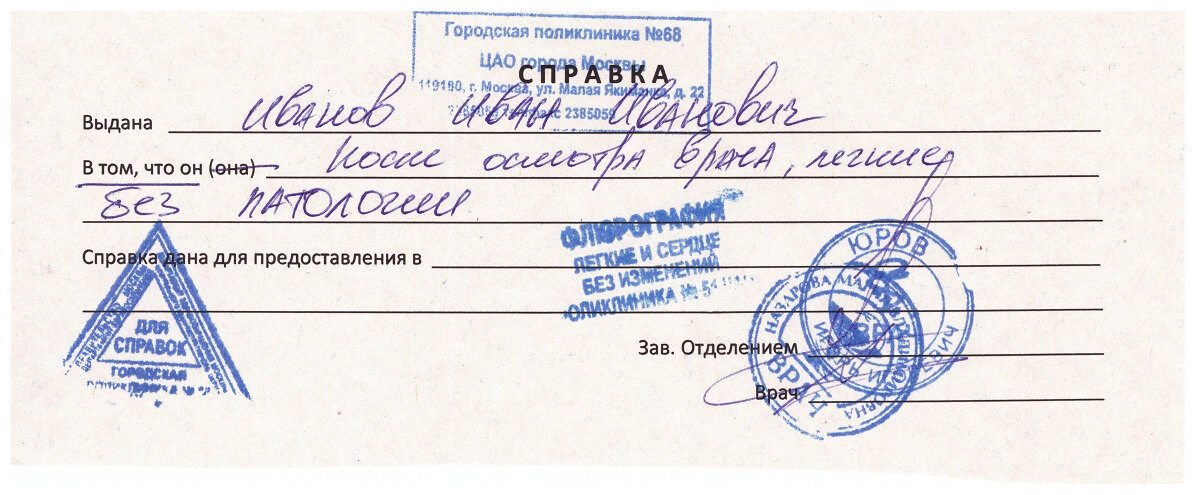 Городская поликлиника №68
ЦАО города Москвы
СПРАВКА
119180, г. Москва, ул. Малая Якиманка, д. 22
2385059 2385059
Выдана Иванов Иван Иванович
В том, что он (она) после осмотра врача, легкие
без патологии
ФЛЮРОГРАФИЯ
ЛЕГКИЕ И СЕРДЦЕ
БЕЗ ИЗМЕНЕНИЙ
ОЛИКЛИНИКА № 51
Справка дана для предоставления в
ДЛЯ
СПРАВОК
ГОРОДСКАЯ
ЮРОВ
НАЗАРОВА
ВРАЧ
Зав. Отделением
Врач